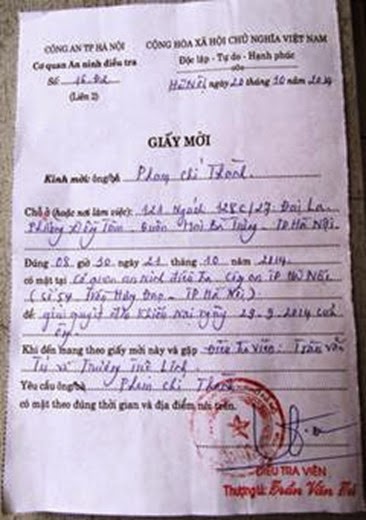 CÔNG AN TP HÀ NỘI
Cơ quan An ninh điều tra
Số 16-02
(Liên 2)
CỘNG HÒA XÃ HỘI CHỦ NGHĨA VIỆT NAM
Độc lập - Tự do - Hạnh phúc
Hà Nội, ngày 20 tháng 10 năm 2014
GIẤY MỜI
Kính mời: ông/bà Phạm Chí Thành
Chỗ ở (hoặc nơi làm việc): 12A Ngách 128C/27 Đại La
Phường Đồng Tâm - Quận Hai Bà Trưng - TP Hà Nội
Đúng 08 giờ 30 ngày 21 tháng 10 năm 2014
có mặt tại Cơ quan an ninh điều tra - Công an TP Hà Nội
(Số 54 Trần Hưng Đạo - TP Hà Nội)
để giải quyết đơn khiếu nại ngày 29-9-2014 của
Khi đến mang theo giấy mời này và gặp Điều tra viên: Trần Văn
Yêu cầu ông/bà Phạm Chí Thành
có mặt theo đúng thời gian và địa điểm nói trên.
ĐIỀU TRA VIÊN
Trần Văn